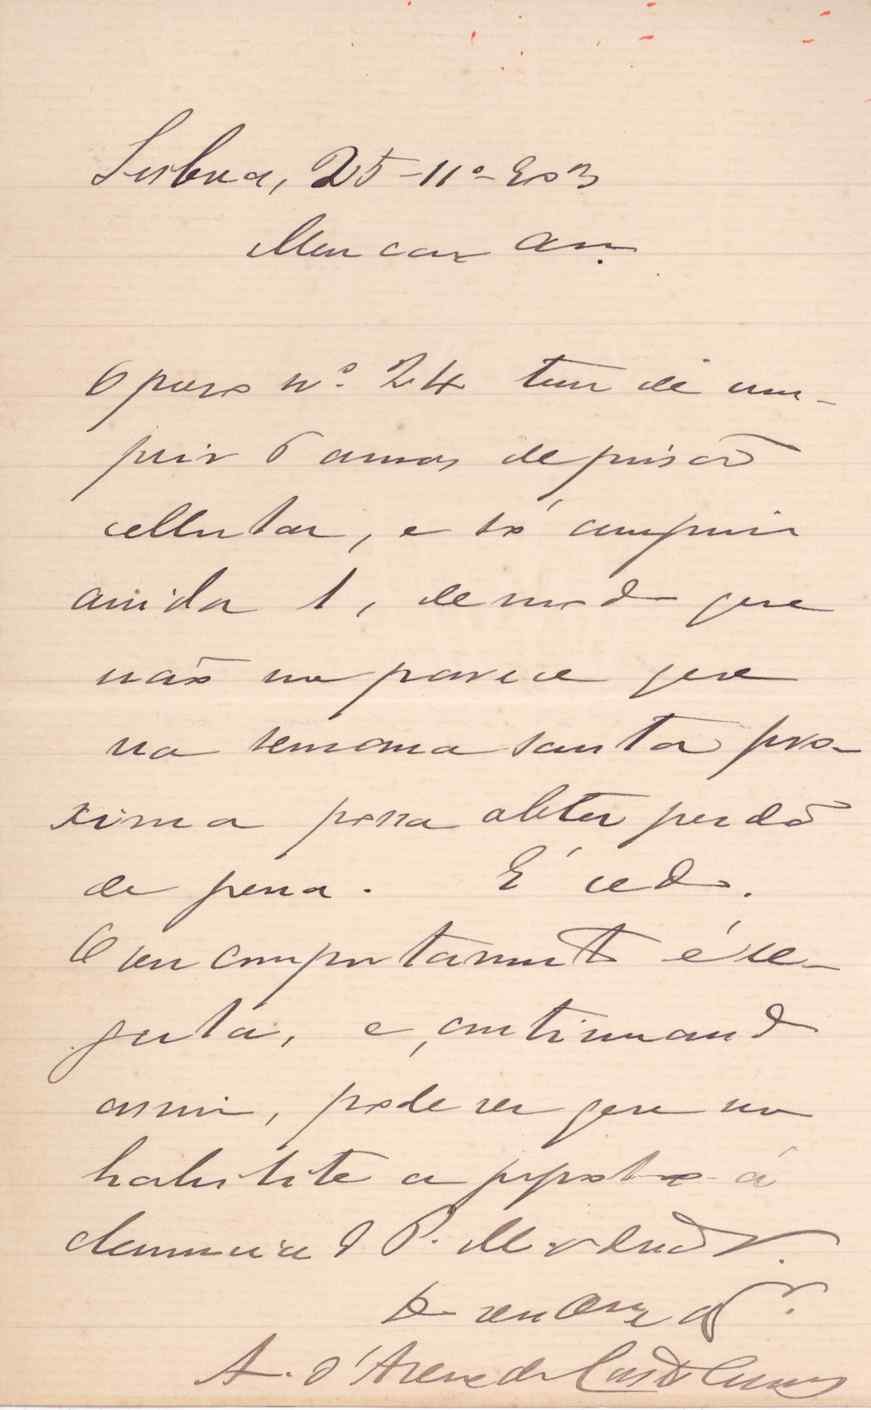 Lisboa, 25-11º-903
Meu caro Am.
O preso nº 24 tem de cum-
prir 6 annos de prisão
cellular, e só cumpriu
ainda 1, de modo que
não me parece que
na semana santa pro-
xima possa obter perdão
de pena. É cedo.
O seu comportamento é re-
gular, e, continuando
assim, póde ser que me
habilite a propol-o á
clemencia do P. Moderador.
De
A. d'Azevedo Castello Branco